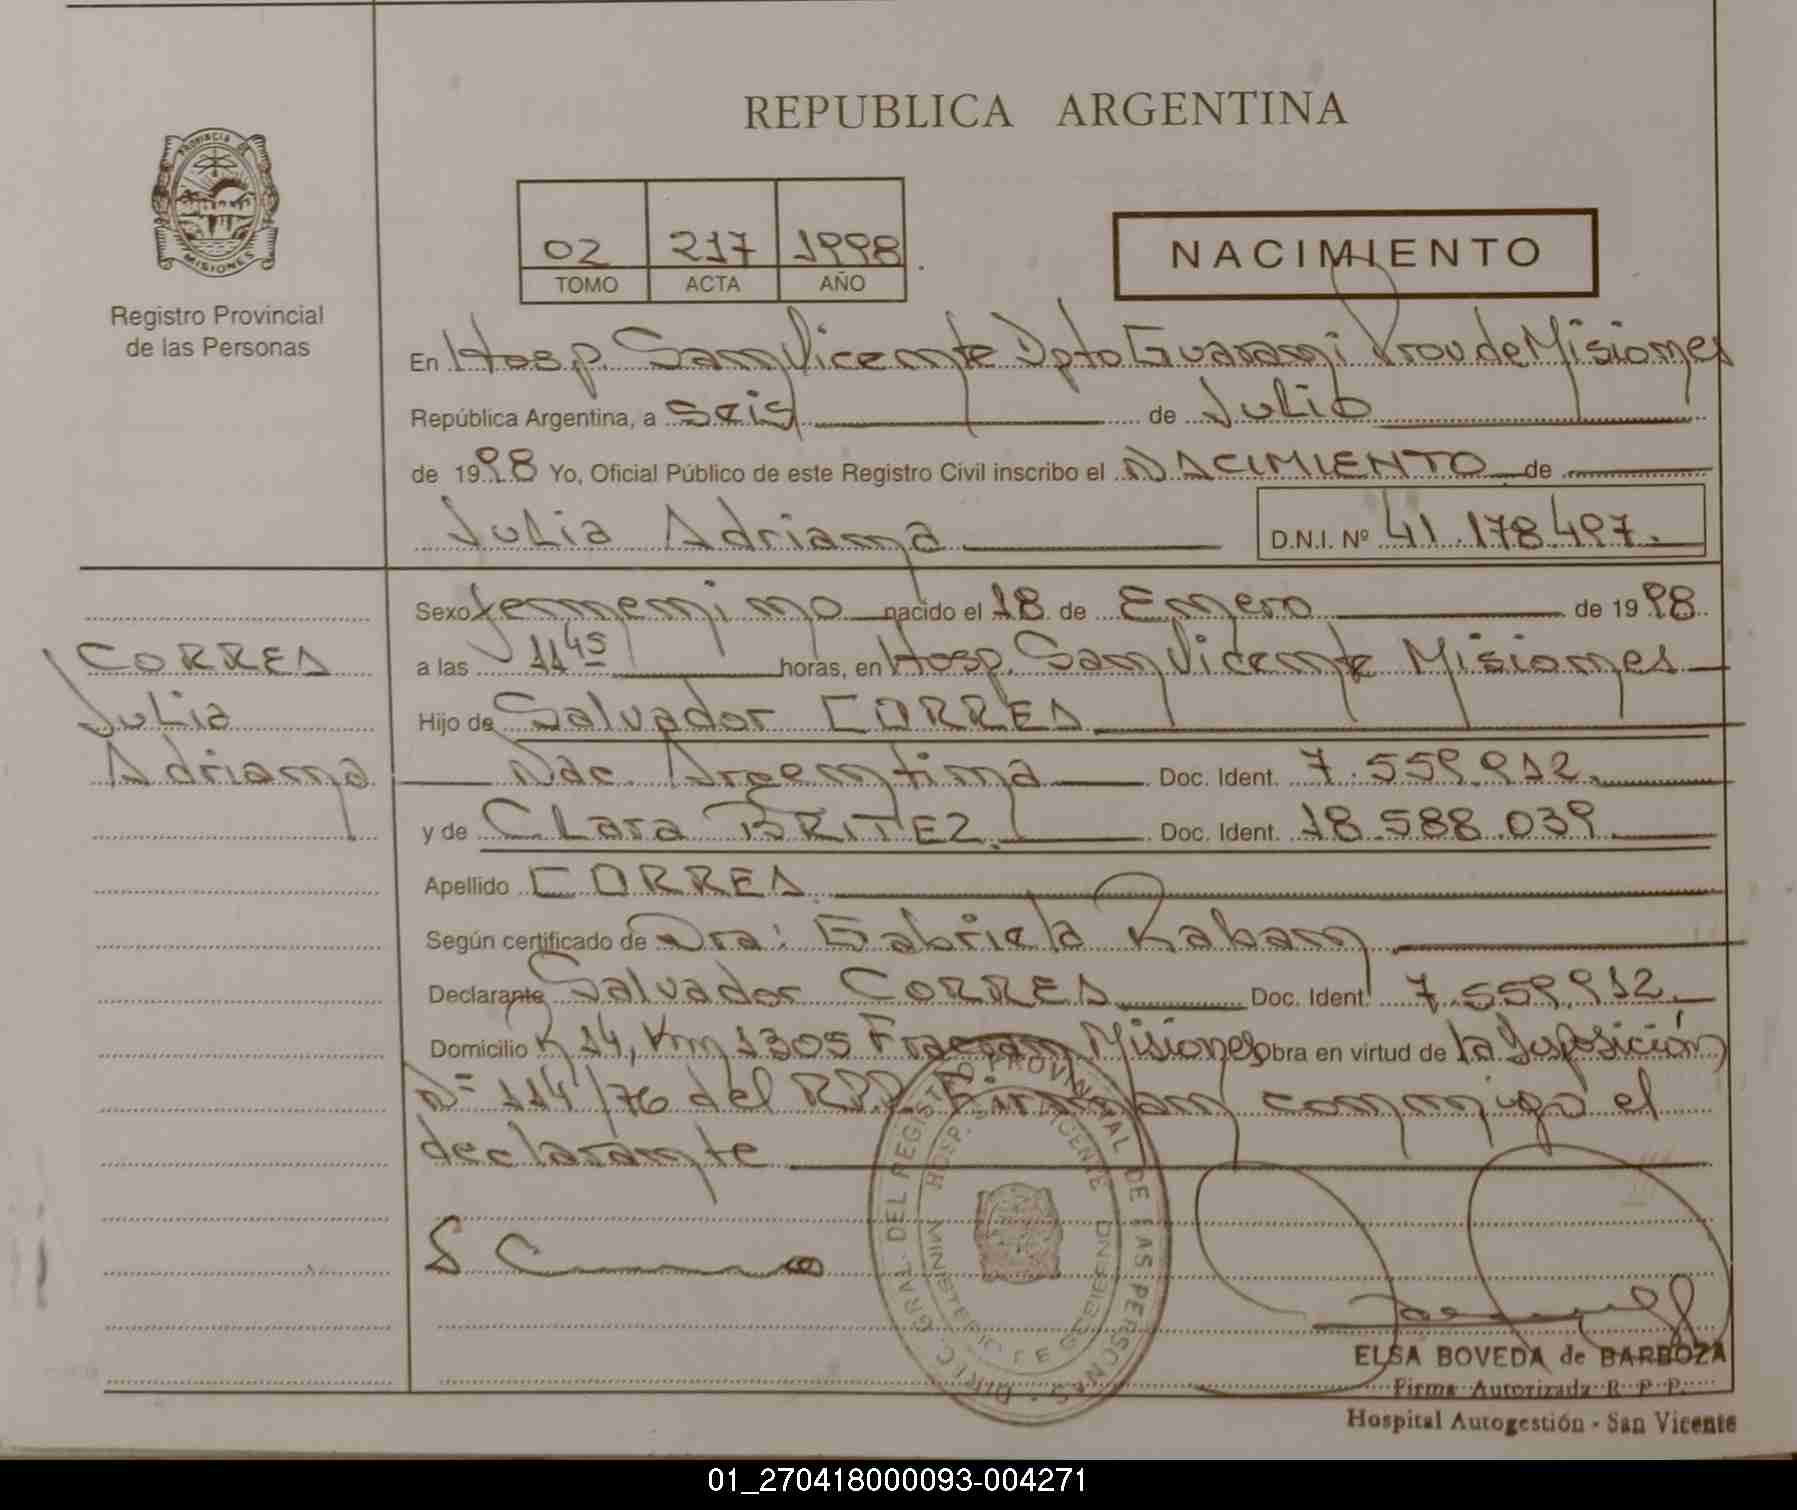 REPUBLICA ARGENTINA
PROVINCIA DE
MISIONES
Registro Provincial
de las Personas
02 217 1998
TOMO ACTA AÑO
NACIMIENTO
En Hosp. San Vicente Dpto Guarani Prov de Misiones
República Argentina, a seis de Julio
de 1998 Yo, Oficial Público de este Registro Civil inscribo el NACIMIENTO de
Julia Adriana D.N.I. Nº 41.178.497.
Sexo femenino nacido el 18 de Enero de 1998
a las 11 45 horas, en Hosp. San Vicente Misiones
Hijo de Salvador CORRES
Nac. Argentina Doc. Ident. 7.559.912.
y de Clara BRITEZ. Doc. Ident. 18.588.039
Apellido CORRES
Según certificado de Dra: Gabriela Raban
Declarante Salvador CORRES Doc. Ident. 7.559.912
Domicilio R 14, Km 1305 Fracran Misiones Obra en virtud de la Disposición
Nº 114/76 del R.P.P. Firman conmigo el
declarante
CORRES
Julia
Adriana
DIREC. GRAL. DEL REGISTRO PROVINCIAL DE LAS PERSONAS
HOSP. VICENTE
MINISTERIO DE GOBIERNO
ELSA BOVEDA de BARBOZA
Firma Autorizada R. P. P.
Hospital Autogestión - San Vicente
01_270418000093-004271